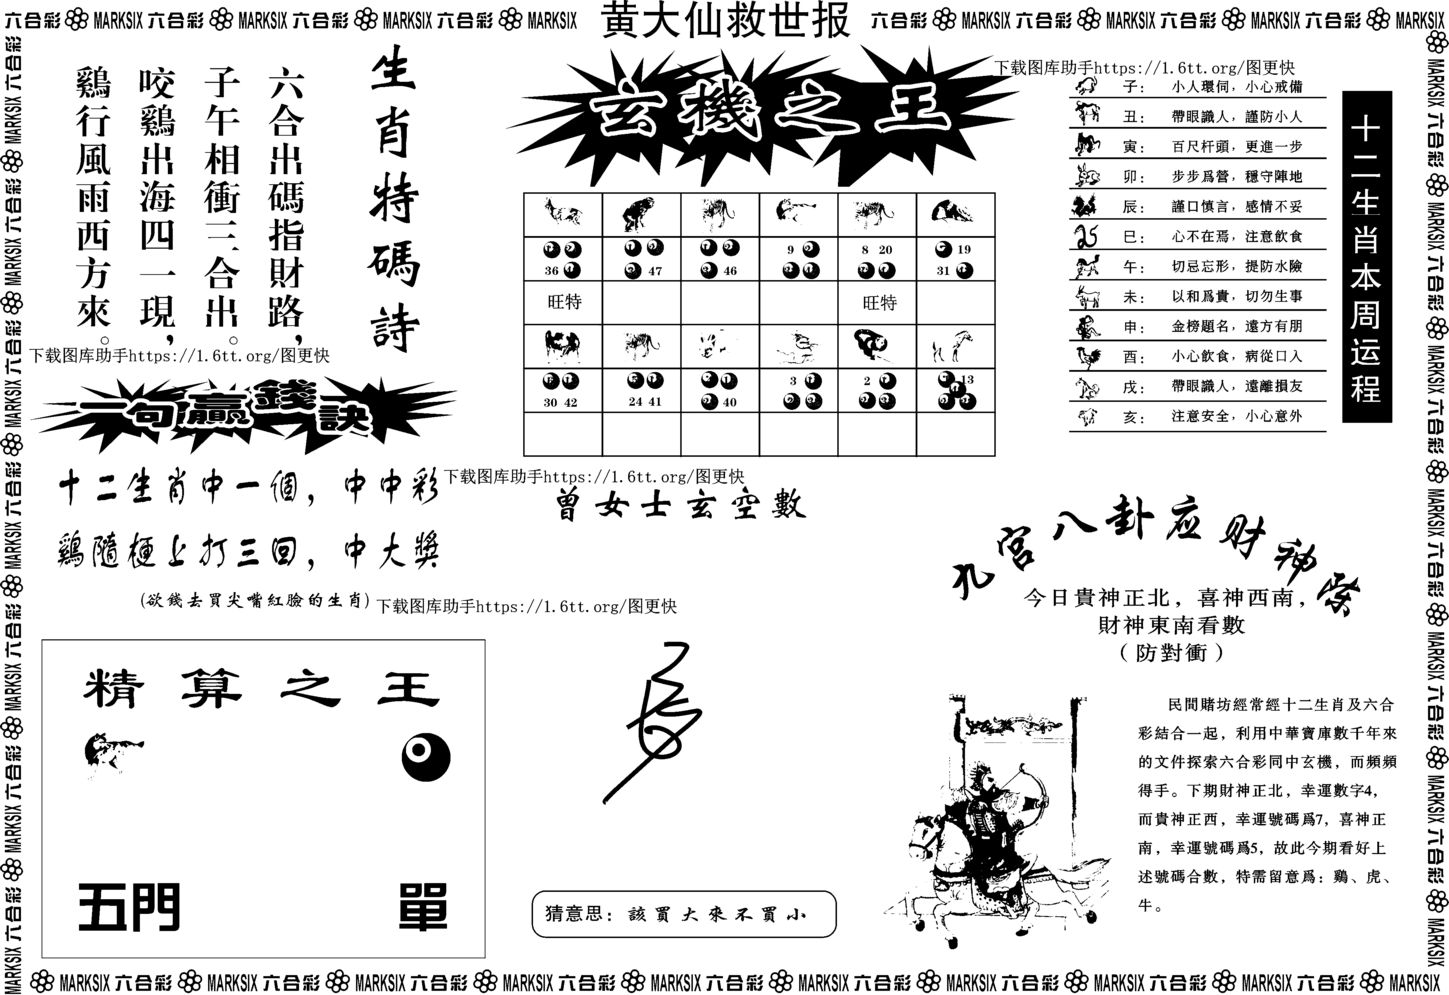 六合彩 MARKSIX 六合彩 MARKSIX 六合彩 MARKSIX 六合彩 MARKSIX
黄大仙救世报
六合彩 MARKSIX 六合彩 MARKSIX 六合彩 MARKSIX 六合彩 MARKSIX
生肖特碼詩
六合出碼指財路，
子午相衝三合出。
咬鷄出海四一現，
鷄行風雨西方來。
下载图库助手https://1.6tt.org/图更快
一句贏錢訣
十二生肖中一個，中中彩
鷄隨梗上打三回，中大獎
(欲錢去買尖嘴紅臉的生肖)
下载图库助手https://1.6tt.org/图更快
精算之王
五門
單
玄機之王
36
47
46
9
8 20
19
31
旺特
旺特
30 42
24 41
40
3
2
13
下载图库助手https://1.6tt.org/图更快
曾女士玄空數
猜意思：該買大來不買小
下载图库助手https://1.6tt.org/图更快
十二生肖本周运程
子： 小人環伺，小心戒備
丑： 帶眼識人，謹防小人
寅： 百尺杆頭，更進一步
卯： 步步爲營，穩守陣地
辰： 謹口慎言，感情不妥
巳： 心不在焉，注意飲食
午： 切忌忘形，提防水險
未： 以和爲貴，切勿生事
申： 金榜題名，遠方有朋
酉： 小心飲食，病從口入
戌： 帶眼識人，遠離損友
亥： 注意安全，小心意外
九宮八卦应财神
今日貴神正北，喜神西南，
財神東南看數
（防對衝）
民間賭坊經常經十二生肖及六合
彩結合一起，利用中華寶庫數千年來
的文件探索六合彩同中玄機，而頻頻
得手。下期財神正北，幸運數字4，
而貴神正西，幸運號碼爲7，喜神正
南，幸運號碼爲5，故此今期看好上
述號碼合數，特需留意爲：鷄、虎、
牛。
MARKSIX 六合彩 MARKSIX 六合彩 MARKSIX 六合彩 MARKSIX 六合彩 MARKSIX 六合彩 MARKSIX 六合彩 MARKSIX 六合彩 MARKSIX 六合彩 MARKSIX 六合彩 MARKSIX